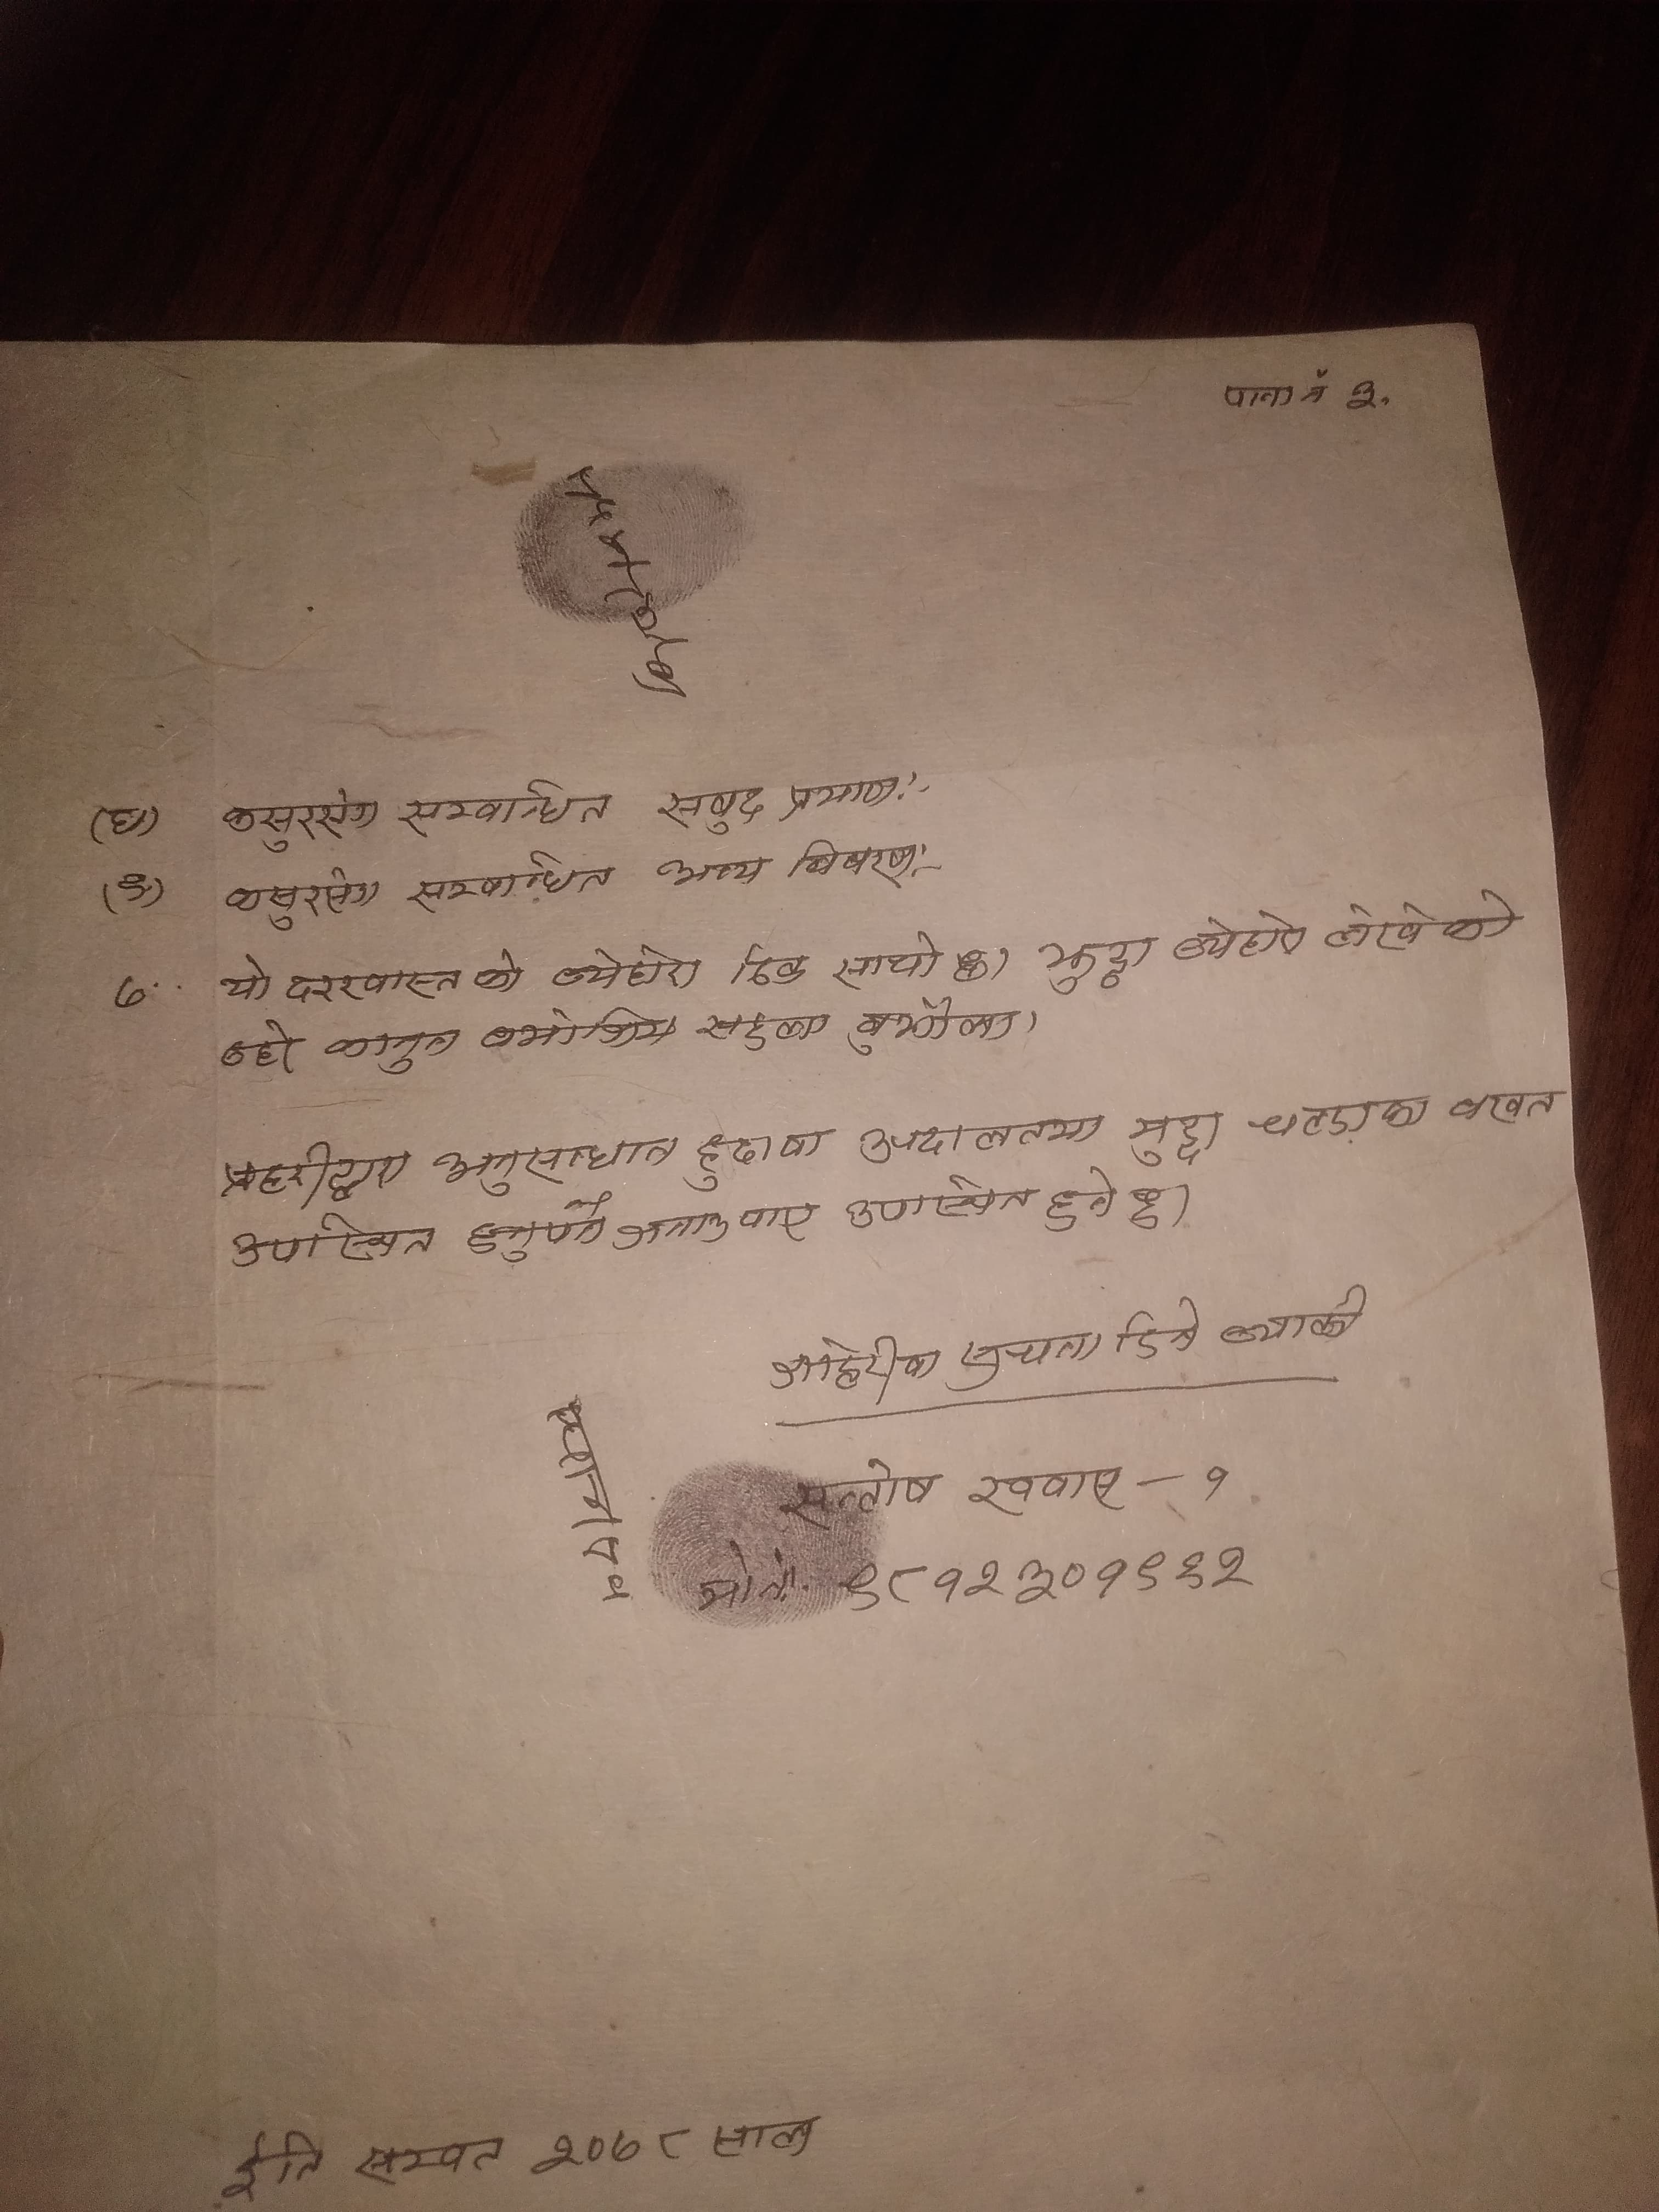 पाना नं ३.
(घ) कसुरसंग सम्बान्धित सबुद प्रमाण:-
(ङ) कसुरसंग सम्बान्धित अन्य विवरण:-
७. यो दरखास्त को व्येहोरा ठिक साचो छ। झुट्ठा व्येहोरा लेखेको
ठहरे कानुन बमोजिम सहुला बुझौला।
प्रहरीद्वारा अनुसन्धान हुदा वा अदालतमा मुद्दा चल्दाका बखत
उपस्थित हुनुपर्ने भनाउपाए उपस्थित हुने छु।
जाहेरी वा सुचना दिने व्याक्ती
सन्तोष खवास - १
मो.नं. ९८१२३०१९६२
ईति सम्वत २०७८ साल